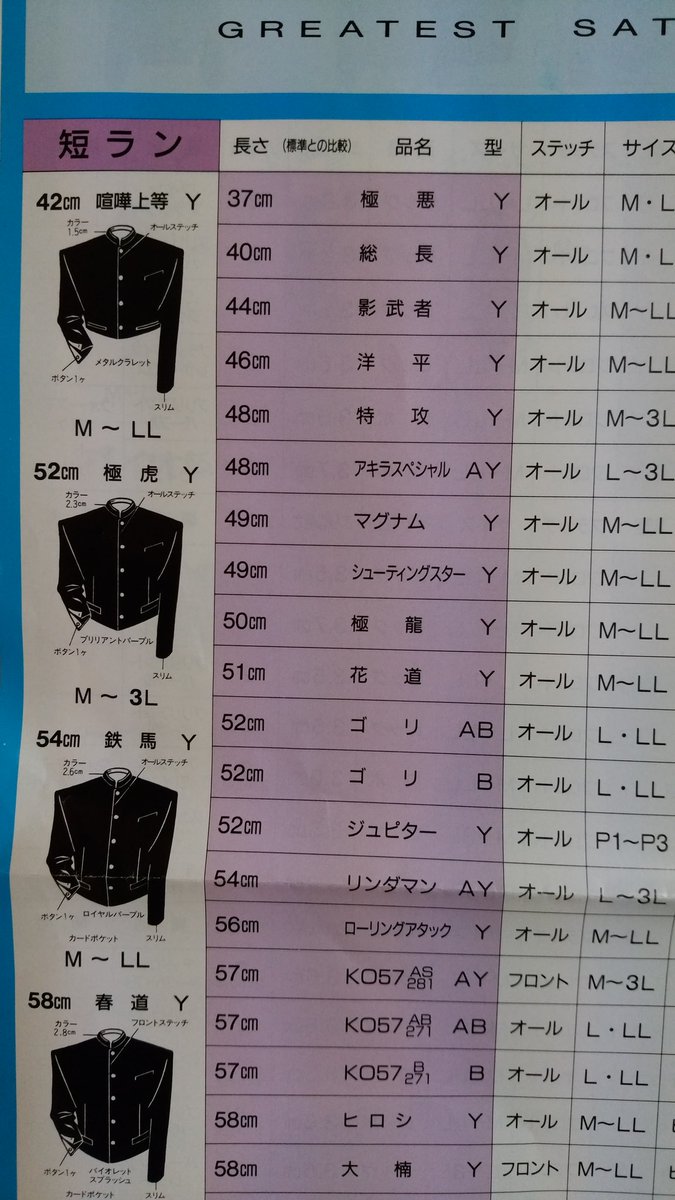 GREATEST SAT
短ラン
42cm 喧嘩上等 Y
カラー 1.5cm
オールステッチ
メタルクラレット
ボタン1ヶ
スリム
M～LL
52cm 極虎 Y
カラー 2.3cm
オールステッチ
ブリリアントパープル
ボタン1ヶ
スリム
M～3L
54cm 鉄馬 Y
カラー 2.6cm
オールステッチ
ボタン1ヶ
ロイヤルパープル
カードポケット
スリム
M～LL
58cm 春道 Y
カラー 2.8cm
フロントステッチ
ボタン1ヶ
バイオレットスプラッシュ
カードポケット
スリム
長さ (標準との比較) 品名 型 ステッチ サイズ
37cm 極悪 Y オール M・L
40cm 総長 Y オール M・L
44cm 影武者 Y オール M～LL
46cm 洋平 Y オール M～LL
48cm 特攻 Y オール M～3L
48cm アキラスペシャル AY オール L～3L
49cm マグナム Y オール M～LL
49cm シューティングスター Y オール M～LL
50cm 極龍 Y オール M～LL
51cm 花道 Y オール M～LL
52cm ゴリ AB オール L・LL
52cm ゴリ B オール L・LL
52cm ジュピター Y オール P1～P3
54cm リンダマン AY オール L～3L
56cm ローリングアタック Y オール M～LL
57cm KO57 AS 281 AY フロント M～3L
57cm KO57 AB 271 AB オール L・LL
57cm KO57 B 271 B オール L・LL
58cm ヒロシ Y オール M～LL
58cm 大楠 Y フロント M～LL